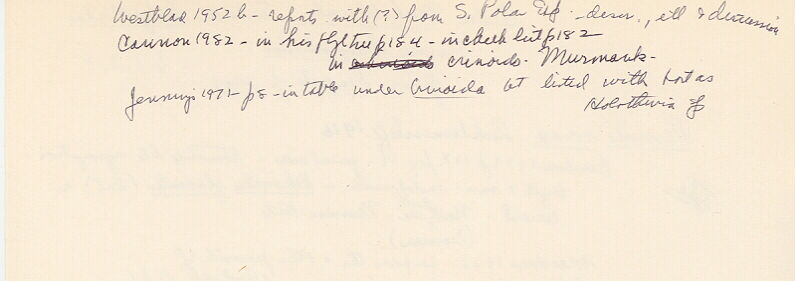 Westblad 1952 b - reports with (?) from S. Polar Exp - descr., ill & discussion
Cannon 1982 - in his phyl tree p184 - in check list p182
in crinoids - Murmansk -
Jennings 1971 - p8 - in table under Crinoida bt listed with host as
Holothuria sp